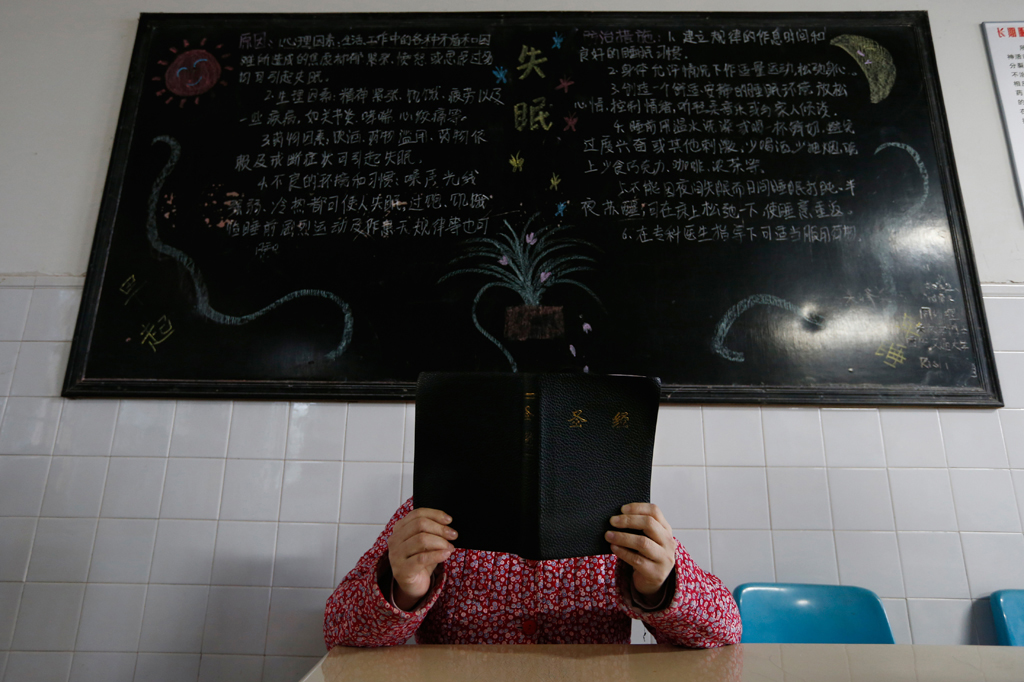 失
眠
原因: 1.心理因素: 生活工作中的各种矛盾和困
难所造成的焦虑抑郁 紧张、愤怒 或思虑过多
均可引起失眠.
2.生理因素: 精神紧张、饥饿、疲劳以及
一些疾病, 如关节炎 咳嗽 心绞痛等.
3.药物因素, 饮酒、药物滥用、药物依
赖及戒断症状可引起失眠.
4.不良的环境和习惯: 噪声 光线
冷热都可使人失眠, 过饱、饥饿
睡前剧烈运动及作息无规律等也可
防治措施: 1.建立规律的作息时间和
良好的睡眠习惯.
2.身体允许情况下作适量运动,
3.创造一个舒适、安静的睡眠环境, 放松
心情, 控制情绪, 听轻音乐或与家人倾谈.
4.睡前用温水洗澡或喝一杯鲜奶, 避免
过度兴奋或其他刺激, 少喝酒 少吸烟, 晚
上少食巧克力、咖啡、浓茶等.
5.不能因夜间失眠而日间睡眠打盹, 半
夜苏醒, 可在床上松弛一下 使睡意重返.
6.在专科医生指导下可适当服用药物.
早
起
圣 经